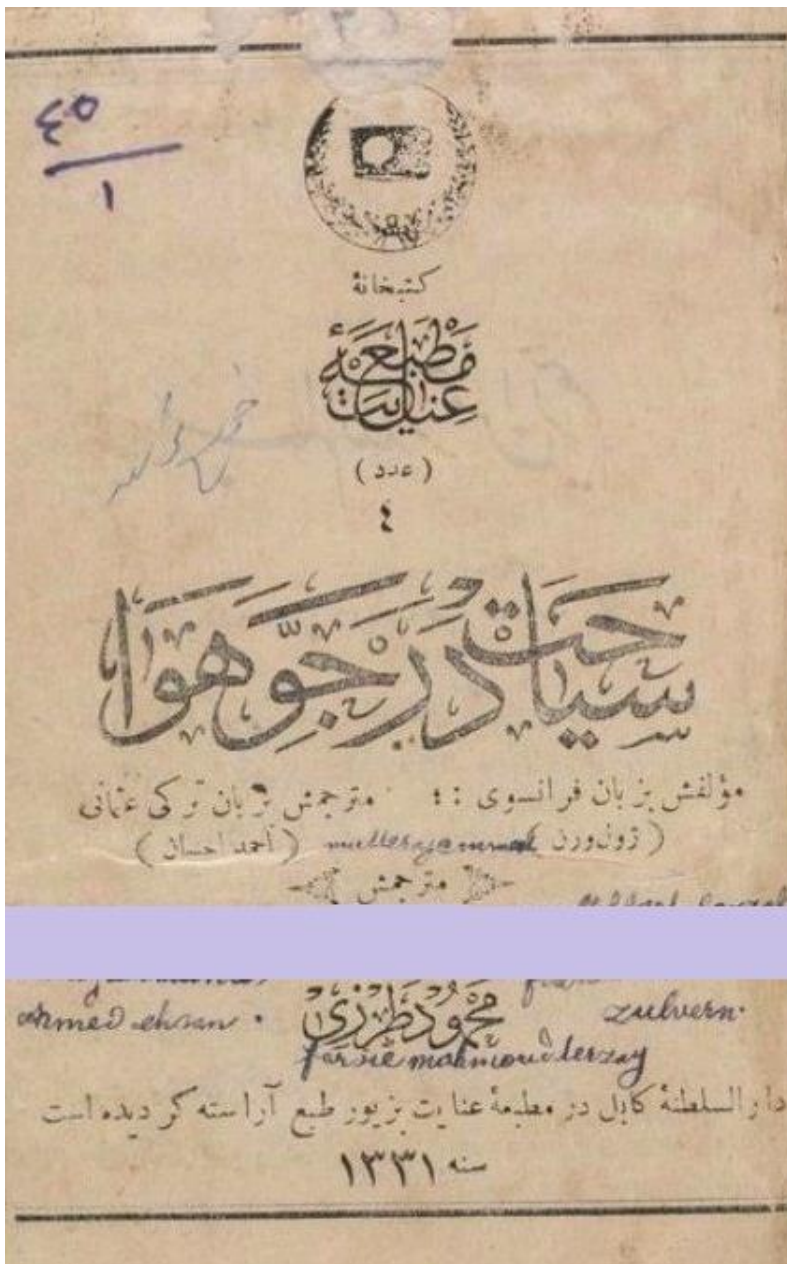 ٤٥
١
كتبخانهٔ
مطبعهٔ
عنایت
(عدد)
٤
سیاحت در جوّ هوا
مؤلفش بزبان فرانسوی : مترجمش بزبان ترکی عثمانی
(ژول‌ورن) (احمد احسان)
مترجمش
ahmed ehsan . محمود طرزی zulvern.
farsie mahmoud terzay
دارالسلطنهٔ کابل در مطبعهٔ عنایت بزیور طبع آراسته کردیده است
سنه ١٣٣١